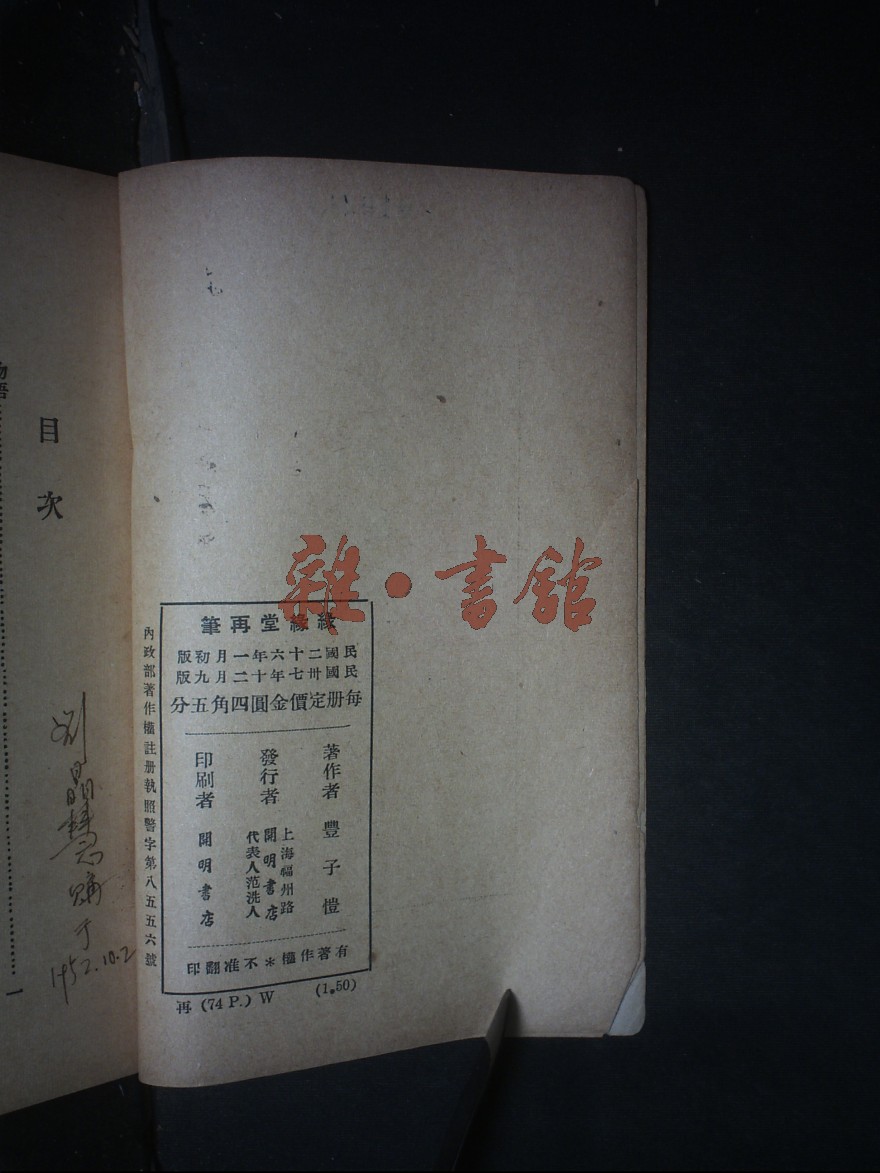 雜•書館
緣緣堂再筆
民國二十六年一月初版
民國卅七年十二月九版
每册定價金圓四角五分
著作者 豐子愷
發行者
上海福州路
開明書店
代表人范洗人
印刷者 開明書店
有著作權＊不准翻印
再 (74 P.) W (1.50)
內政部著作權註册執照警字第八五五六號
目次
劉晶慧購于
1952.10.2
一